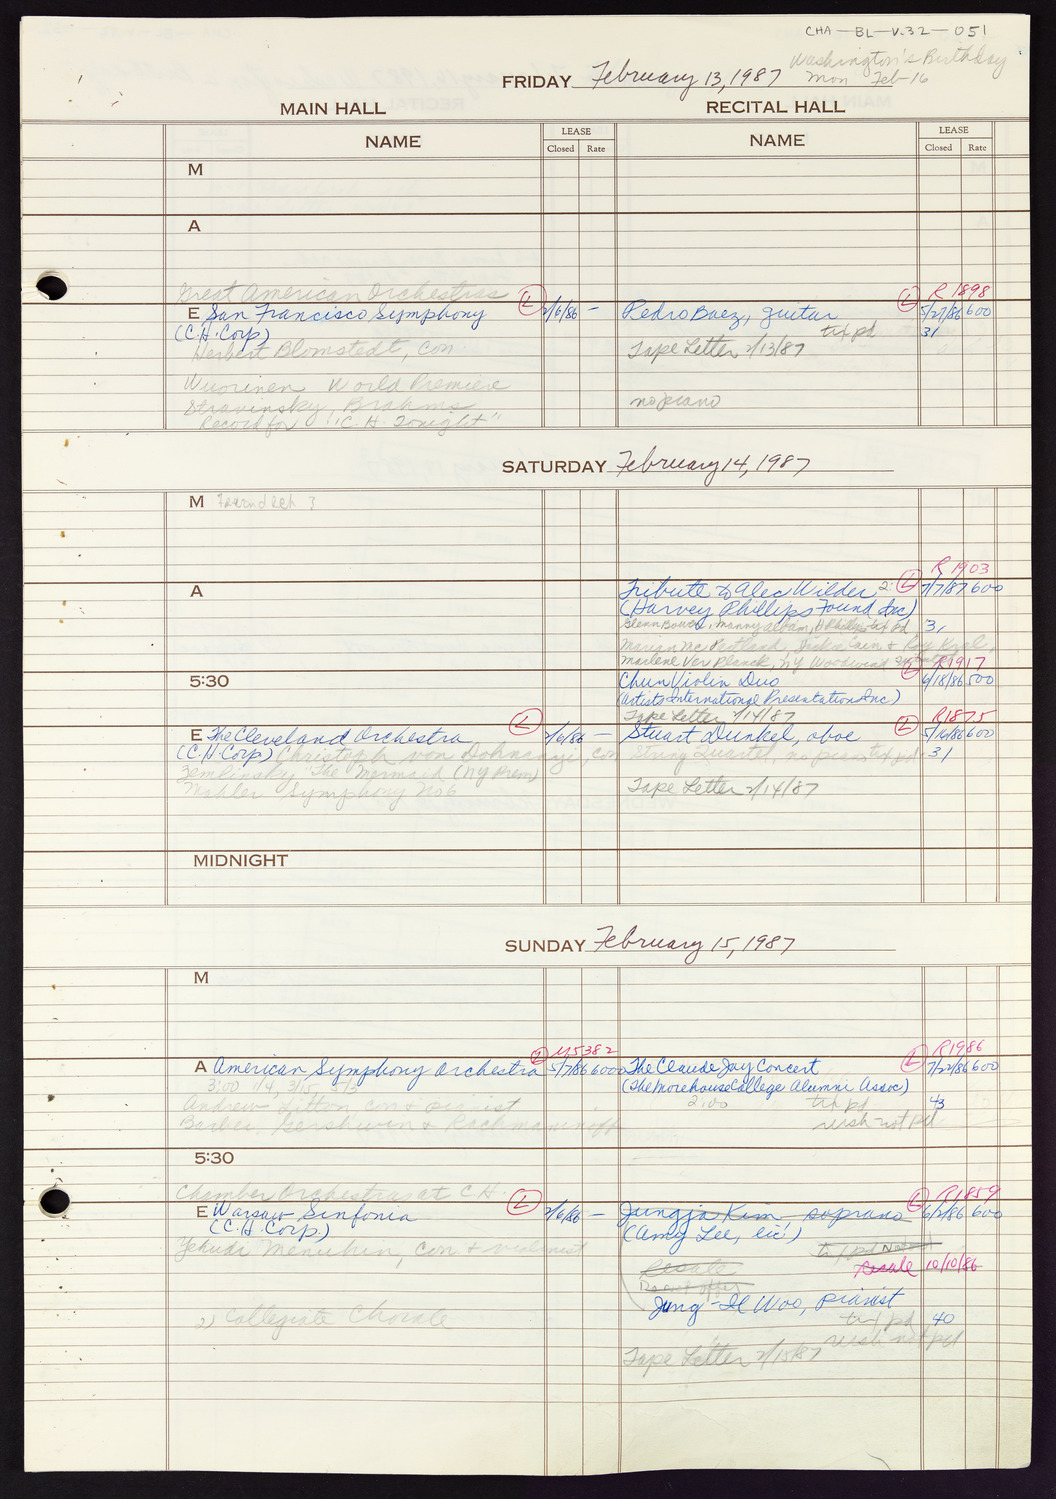 CHA—BL—V.32—051
Washington's Birthday
Mon Feb-16
FRIDAY February 13, 1987
MAIN HALL
RECITAL HALL
NAME
LEASE
Closed Rate
NAME
LEASE
Closed Rate
M
A
Great American Orchestras
E San Francisco Symphony
(C.H. Corp)
L
2/6/86 —
Herbert Blomstedt, con
Wuorinen World Premiere
Stravinsky, Brahms
Record for "C.H. Tonight"
L R1898
Pedro Baez, guitar 5/27/86 600
txt pd 31
Tape Letter 2/13/87
no piano
SATURDAY February 14, 1987
M
A
R1903
Tribute to Alec Wilder 2: L 7/7/87 600
(Harvey Phillips Found Inc)
Glenn Bowen, Manny Albam, H Phillips txt pd 31
Marian McPartland, Jackie Cain & Roy Kral,
Marlene Ver Planck, NY Woodwind
5:30
L R1917
Chun Violin Duo 6/18/86 500
(Artists International Presentations Inc)
Tape Letter 2/14/87
E The Cleveland Orchestra
L
2/6/86 —
(C.H. Corp) Christoph von Dohnanyi, con
Zemlinsky "The Mermaid (NY Prem)
Mahler Symphony No 6
L R1875
Stuart Dunkel, oboe 5/16/86 600
String Quartet, no piano txt pd 31
Tape Letter 2/14/87
MIDNIGHT
SUNDAY February 15, 1987
M
L M5382
A American Symphony Orchestra 5/7/86 6000
3:00 1/4, 3/15, 5/3
Andrew Litton con & pianist
Barber, Gershwin & Rachmaninoff
L R1986
The Claude Jay Concert 7/22/86 600
(The Morehouse College Alumni Assoc)
2:00 txt pd 43
ush not pd
5:30
Chamber Orchestras at C.H.
E Warsaw Sinfonia
L
2/6/86 —
(C.H. Corp)
Yehudi Menuhin, con. & violinist
2) Collegiate Chorale
L R1859
Jungja Kim, soprano 6/2/86 600
(Amy Lee, lic)
txt pd Not
Resale
resale 10/10/86
Jung-Il Woo, pianist
txt pd 40
ush not pd
Tape Letter 2/15/87